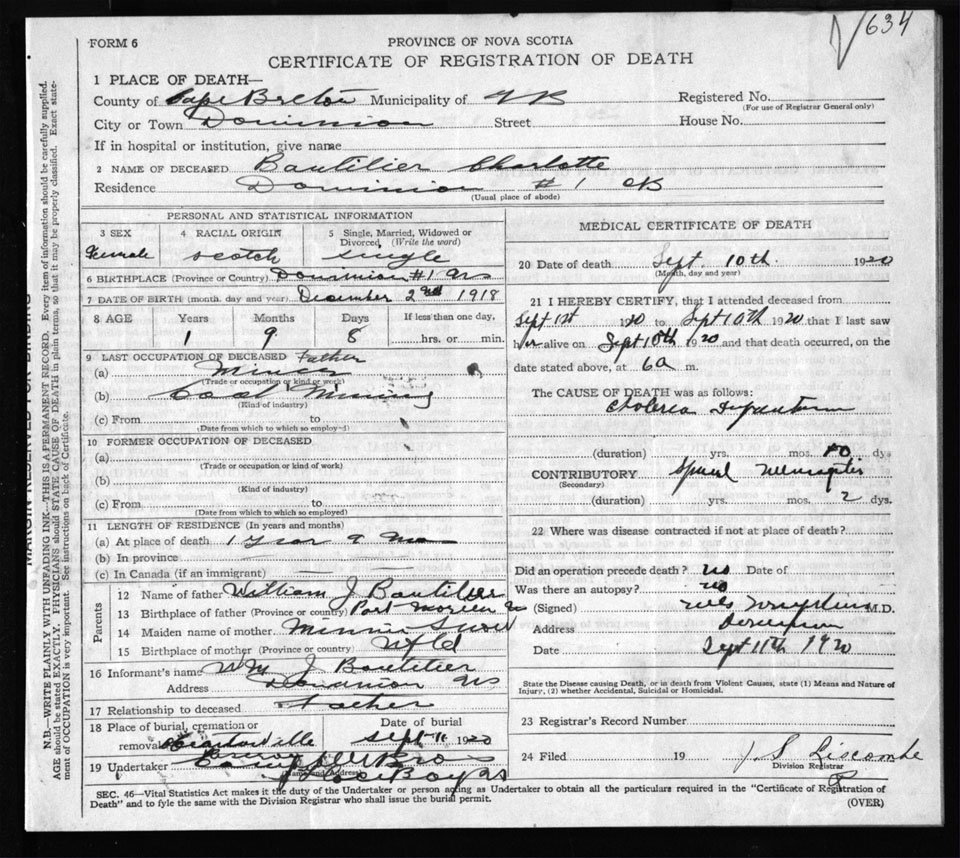 634
FORM 6
PROVINCE OF NOVA SCOTIA
CERTIFICATE OF REGISTRATION OF DEATH
1 PLACE OF DEATH—
County of Cape Breton Municipality of CB Registered No.
(For use of Registrar General only)
City or Town Dominion Street House No.
If in hospital or institution, give name
2 NAME OF DECEASED Boutilier Charlotte
Residence Dominion #1 CB
(Usual place of abode)
PERSONAL AND STATISTICAL INFORMATION
3 SEX 4 RACIAL ORIGIN 5 Single, Married, Widowed or
Divorced, (Write the word)
Female scotch single
6 BIRTHPLACE (Province or Country) Dominion #1 NS
7 DATE OF BIRTH (month, day and year) December 2nd 1918
8 AGE Years Months Days If less than one day,
1 9 8 hrs. or min.
9 LAST OCCUPATION OF DECEASED Father
(a) Miner
(Trade or occupation or kind of work)
(b) Coal Mining
(Kind of industry)
(c) From to
(Date from which to which so employed)
10 FORMER OCCUPATION OF DECEASED
(a)
(Trade or occupation or kind of work)
(b)
(Kind of industry)
(c) From to
(Date from which to which so employed)
11 LENGTH OF RESIDENCE (In years and months)
(a) At place of death 1 Year 9 Mo
(b) In province
(c) In Canada (if an immigrant)
Parents
12 Name of father William J Boutilier
13 Birthplace of father (Province or country) Port Morien NS
14 Maiden name of mother Minnie Snow
15 Birthplace of mother (Province or country) Nfld
16 Informant's name WM J Boutilier
Address Dominion NS
17 Relationship to deceased Father
18 Place of burial, cremation or Date of burial
removal sept 11 1920
19 Undertaker Bros
(Name and Address)
Glace Bay NS
MEDICAL CERTIFICATE OF DEATH
20 Date of death Sept. 10th 1920
(Month, day and year)
21 I HEREBY CERTIFY, that I attended deceased from
Sept 1st 1920 to Sept 10th 1920 that I last saw
her alive on Sept 10th 1920 and that death occurred, on the
date stated above, at 6 a m.
The CAUSE OF DEATH was as follows:
Cholera Infantum
(duration) yrs. mos. 10 dys
CONTRIBUTORY Spinal Meningitis
(Secondary)
(duration) yrs. mos. 2 dys.
22 Where was disease contracted if not at place of death?
Did an operation precede death? no Date of
Was there an autopsy? no
(Signed) M.D.
Address Dominion
Date Sept 11th 1920
State the Disease causing Death, or in death from Violent Causes, state (1) Means and Nature of
Injury, (2) whether Accidental, Suicidal or Homicidal.
23 Registrar's Record Number
24 Filed 19 J. S. Liscombe
Division Registrar
SEC. 46—Vital Statistics Act makes it the duty of the Undertaker or person acting as Undertaker to obtain all the particulars required in the "Certificate of Registration of
Death" and to fyle the same with the Division Registrar who shall issue the burial permit. (OVER)
MARGIN RESERVED FOR BINDING
N.B.—WRITE PLAINLY WITH UNFADING INK—THIS IS A PERMANENT RECORD. Every item of information should be carefully supplied.
AGE should be stated EXACTLY. PHYSICIANS should STATE CAUSE OF DEATH in plain terms, so that it may be properly classified. Exact state-
ment of OCCUPATION is very important. See instructions on back of Certificate.